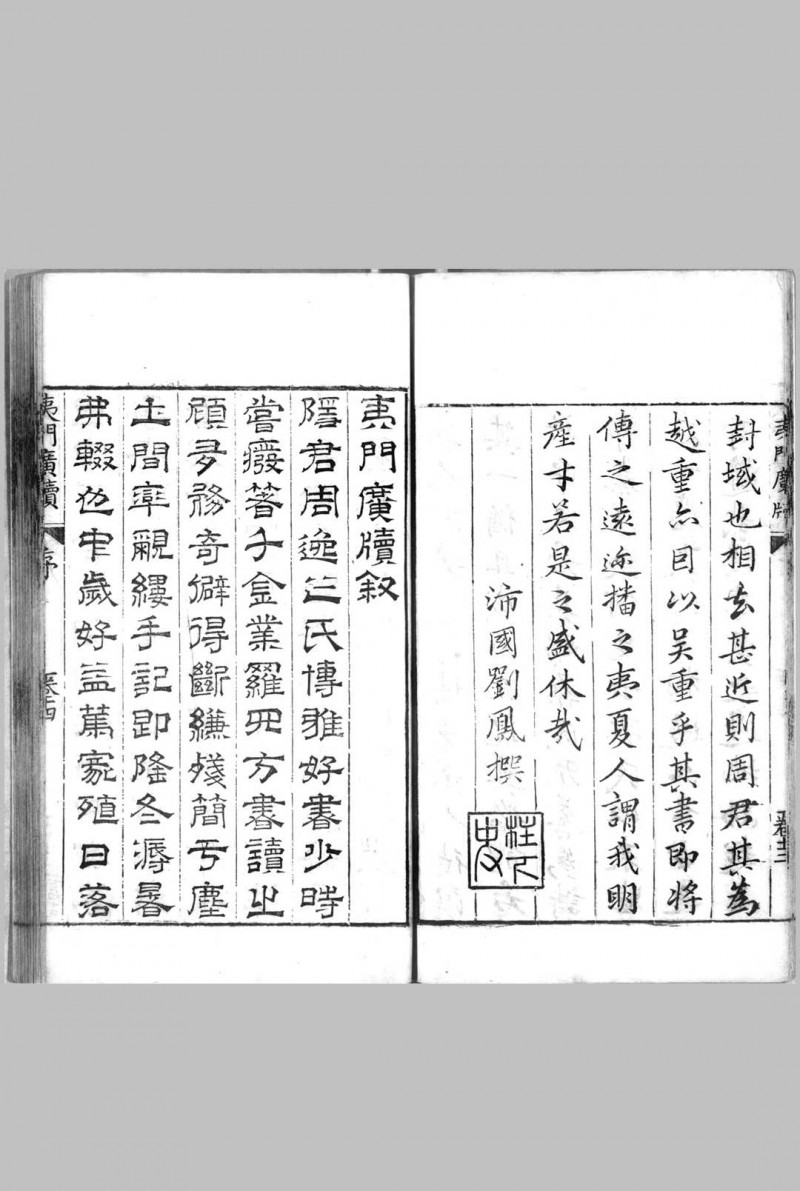 夷門廣牘
封域也相去甚近則周君其為
越重亦目以吳重乎其書即將
傳之遠迩播之夷夏人謂我明
産才若是之盛休哉
沛國劉鳳撰
柱下史
夷門廣牘叙
隱君周逸之氏博雅好書少時
嘗癈箸千金業羅四方書讀之
顧多務奇僻得斷縑殘簡亏塵
土間率覼縷手記即隆冬溽暑
弗輟也中歲好益篤家殖日落
夷門廣牘
序